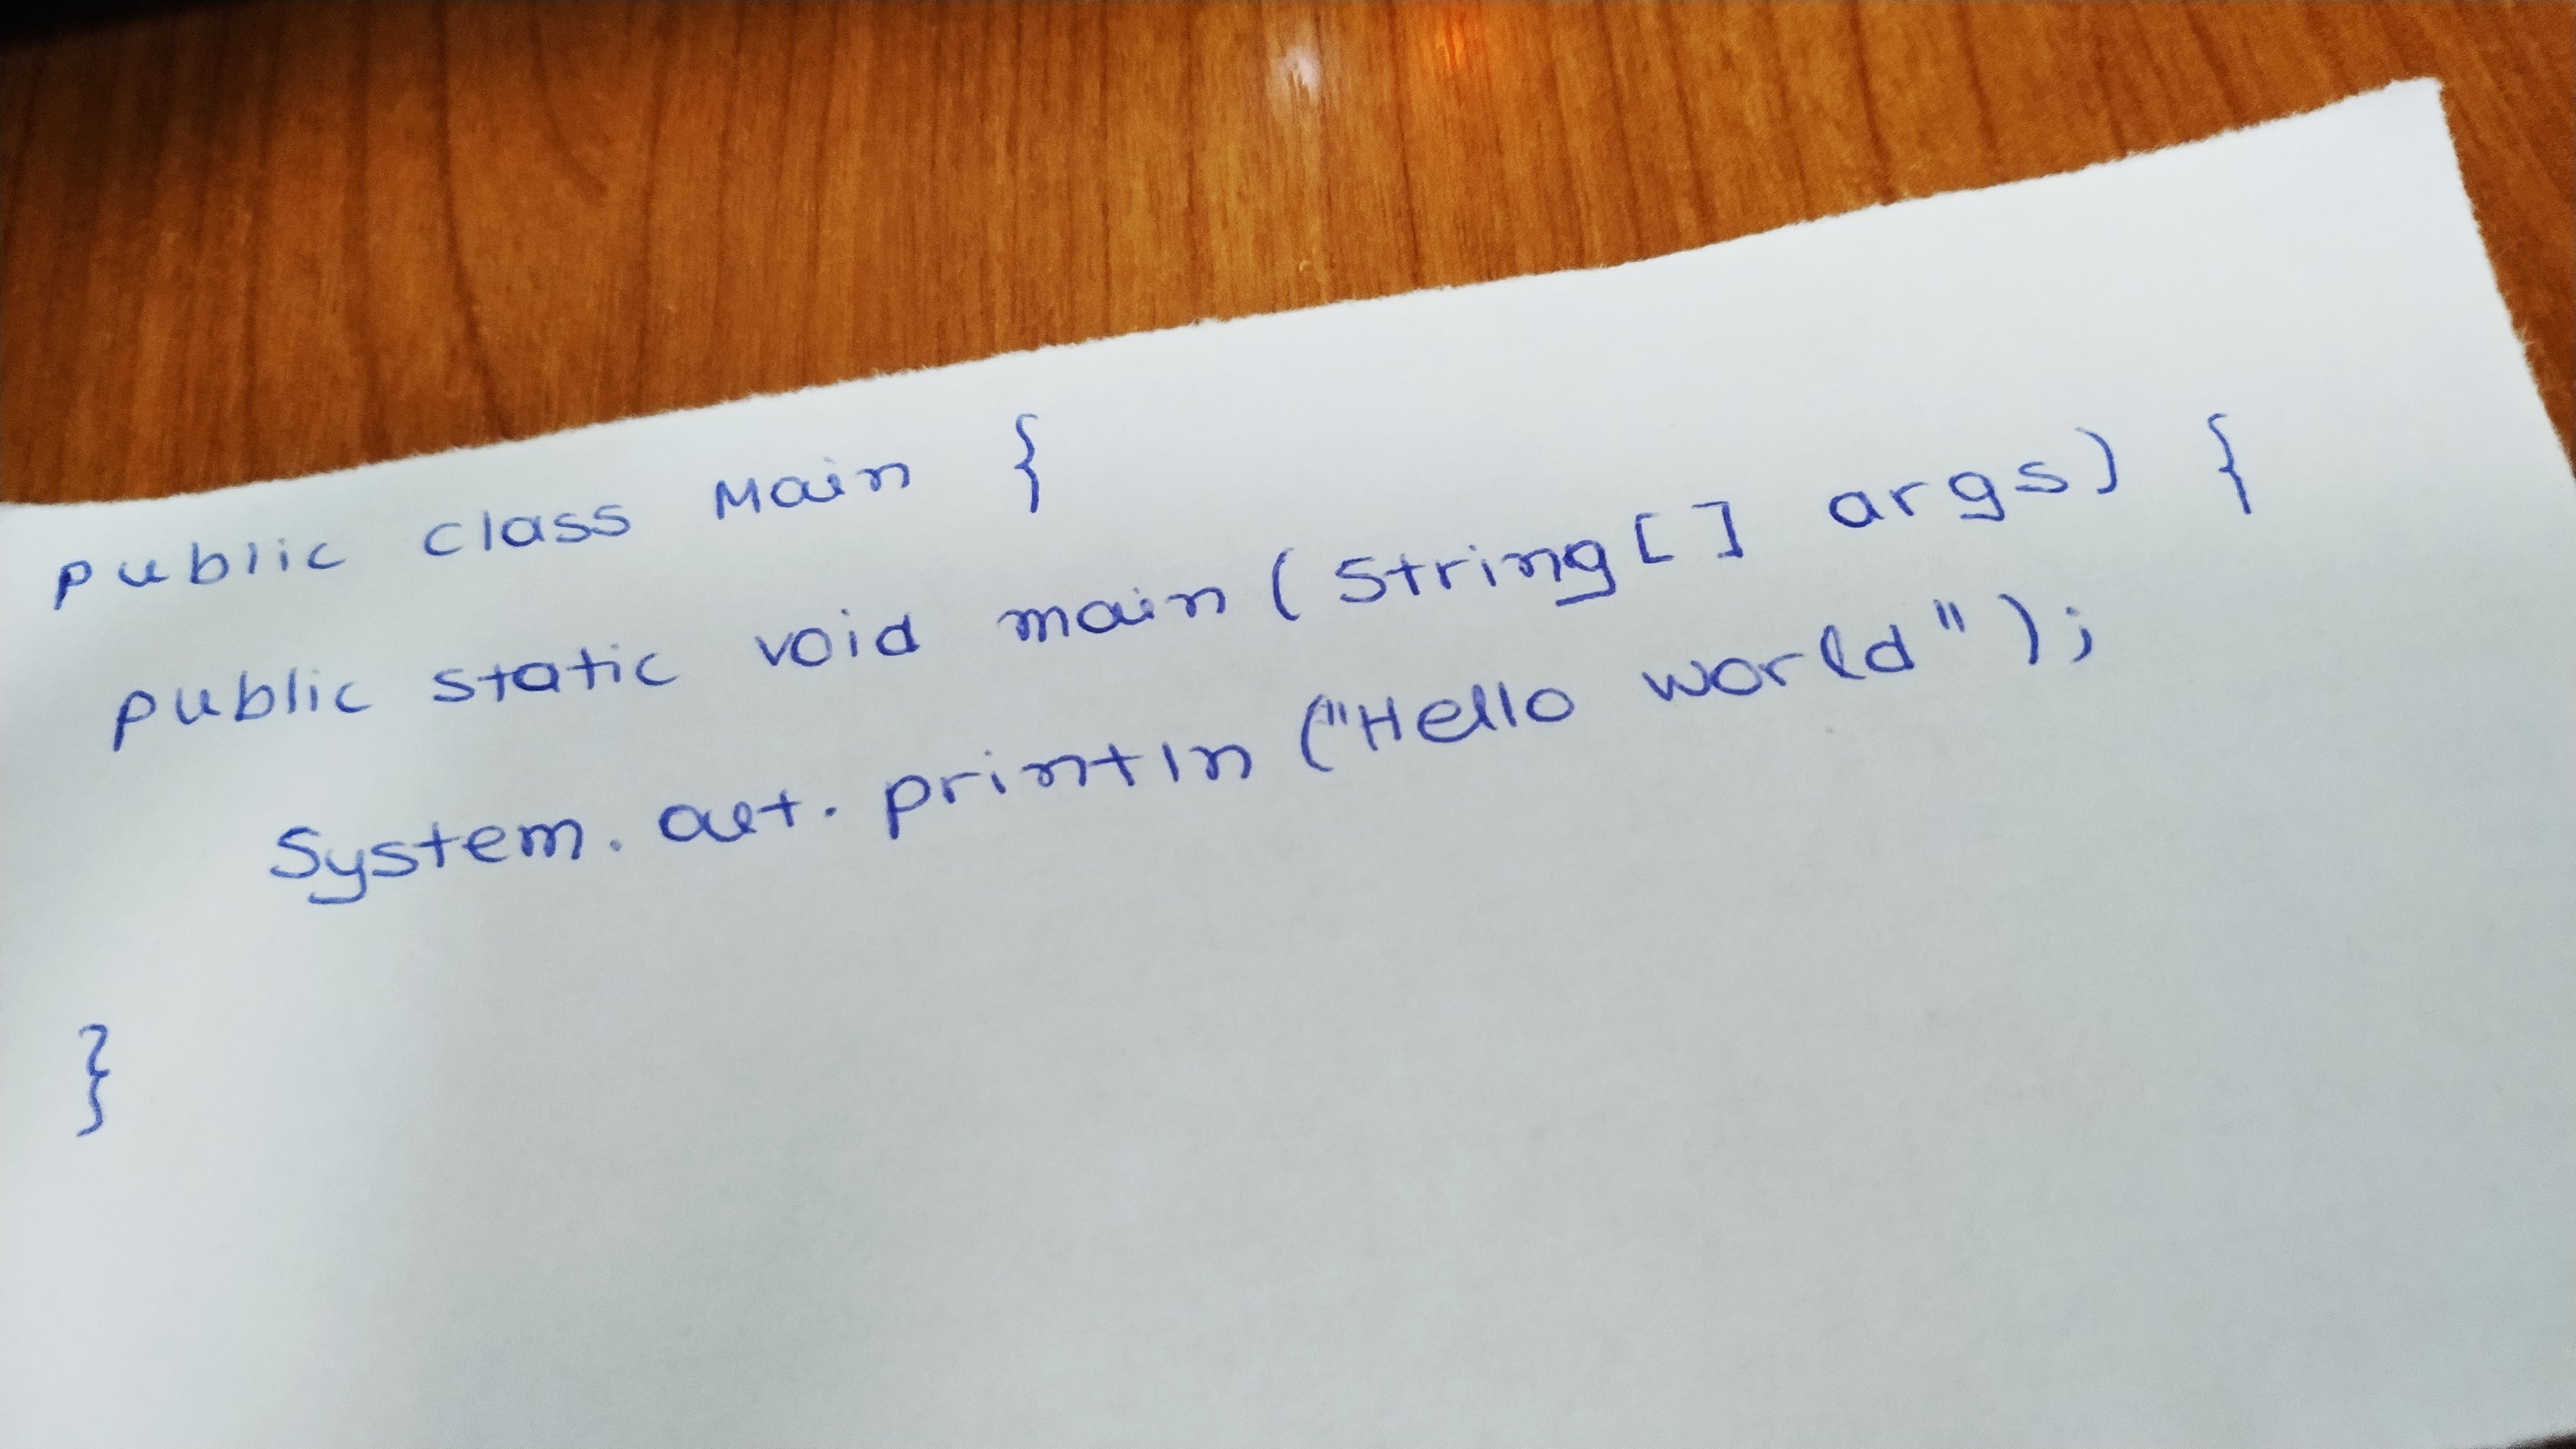 public class Main {
public static void main (String[] args) {
System.out.println ("Hello world");
}